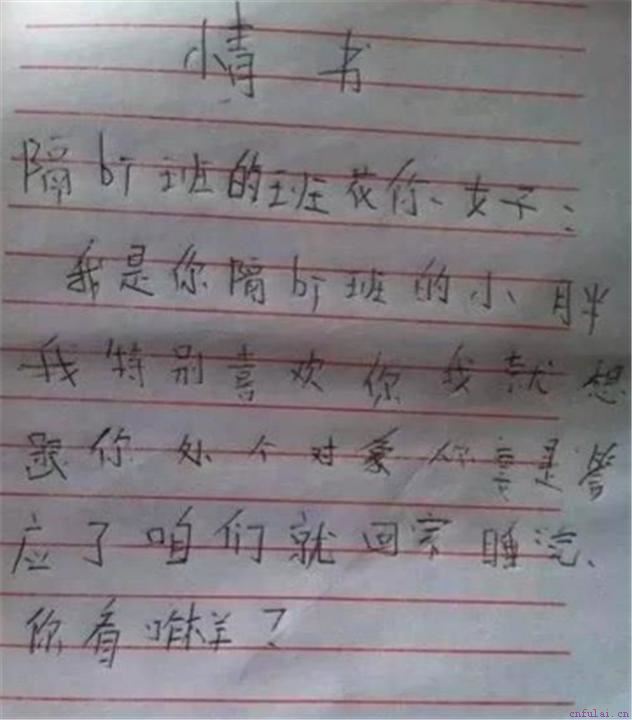 情书
隔bi班的班花你、女子:
我是你隔bi班的小、胖
我特别喜欢你我就想
跟你处个对象你要是答
应了咱们就回家睡
你看咋样?
cnfulai.cn